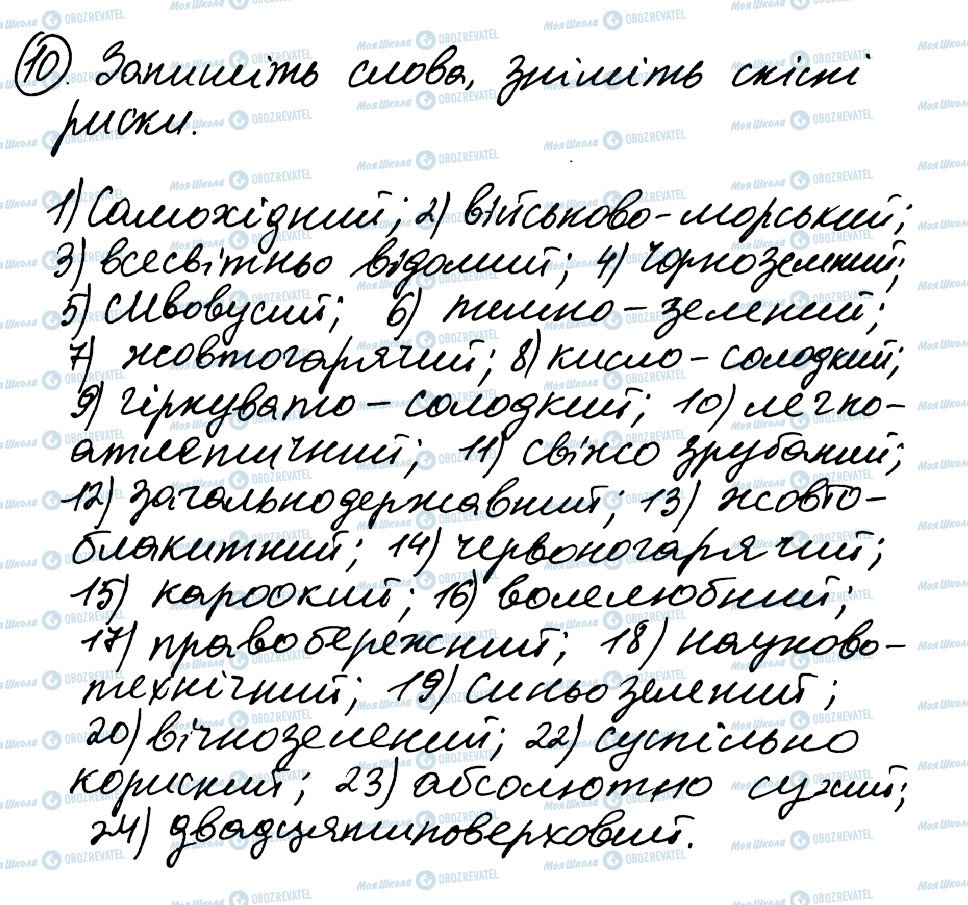 10. Запишіть слова, зніміть скісні
риски.
1) Самохідний; 2) військово-морський;
3) всесвітньо відомий; 4) чорноземний;
5) сивовусий; 6) темно-зелений;
7) жовтогарячий; 8) кисло-солодкий;
9) гіркувато-солодкий; 10) легко-
атлетичний; 11) свіжо зрубаний;
12) загальнодержавний; 13) жовто-
блакитний; 14) червоногарячий;
15) кароокий; 16) волелюбний;
17) правобережний; 18) науково-
технічний; 19) синьо зелений;
20) вічнозелений; 22) суспільно
корисний; 23) абсолютно сухий;
24) двадцятиповерховий.